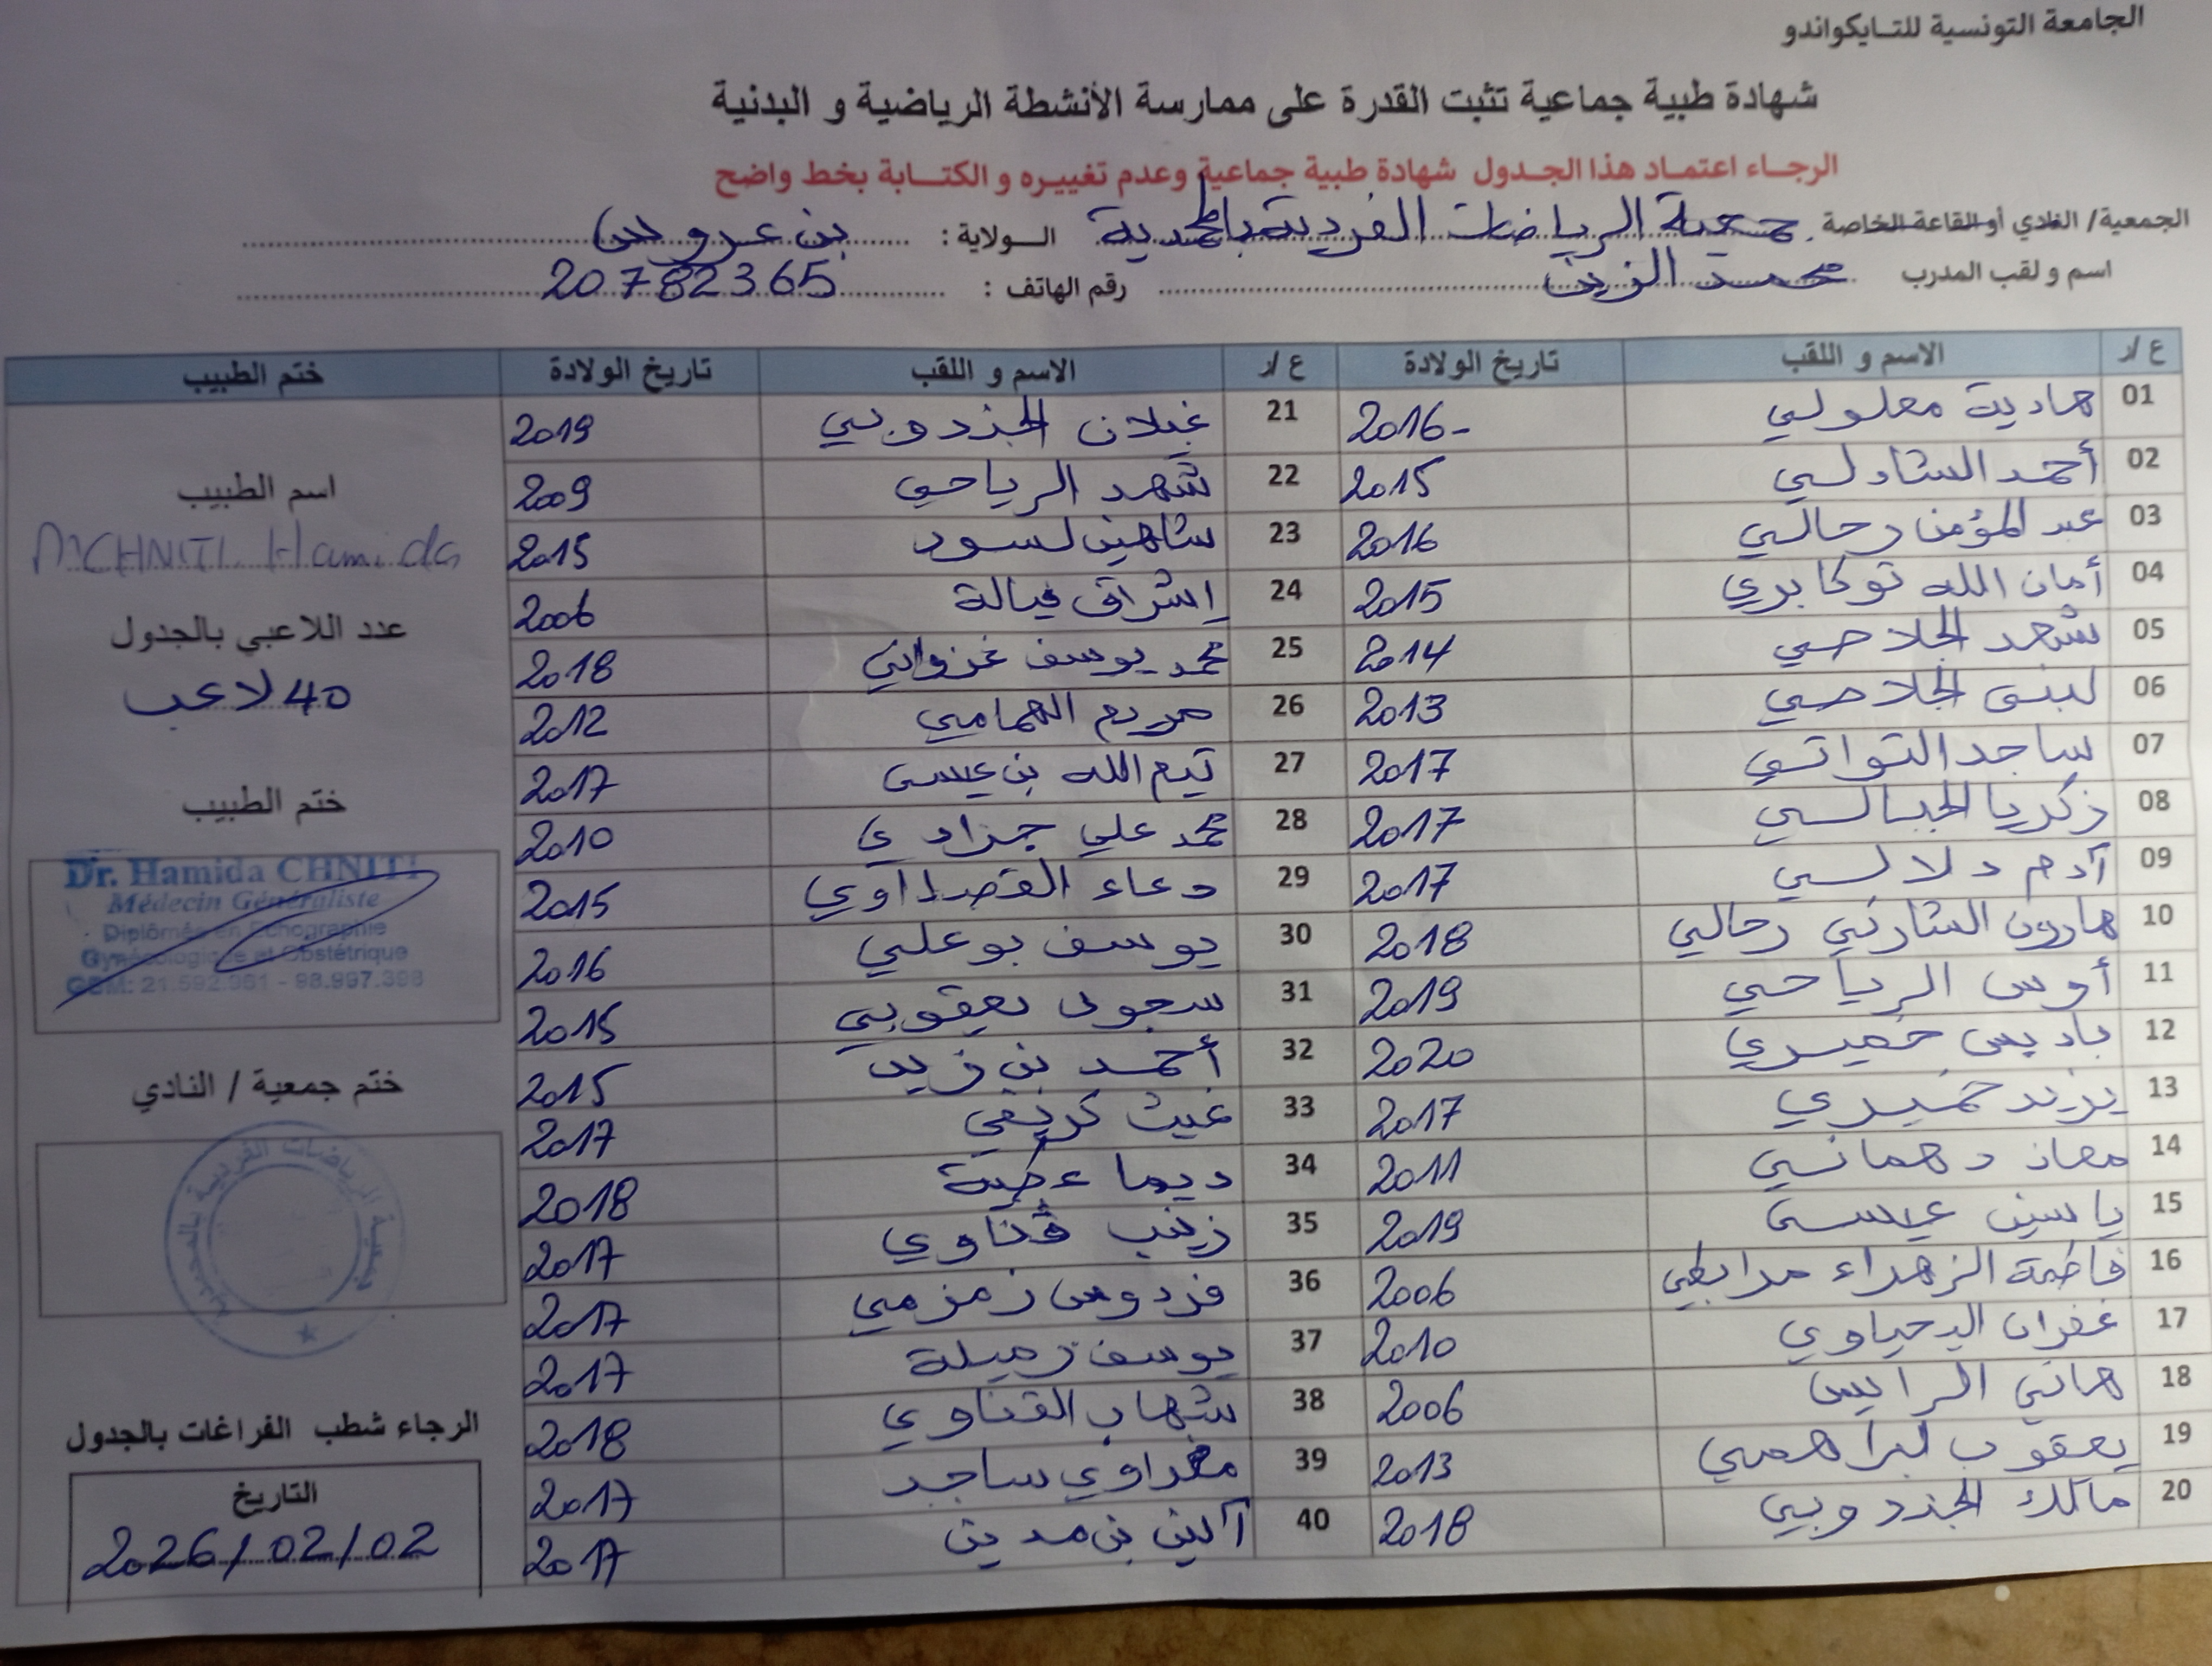 الجامعة التونسية للتايكواندو
شهادة طبية جماعية تثبت القدرة على ممارسة الأنشطة الرياضية و البدنية
الرجاء اعتماد هذا الجدول شهادة طبية جماعية وعدم تغييره و الكتابة بخط واضح
الجمعية/ النادي أو القاعة الخاصة جمعية الرياضات الفردية بالمحمدية الولاية : بن عروس
اسم و لقب المدرب محمد الزين رقم الهاتف : 20782365
ع /ر الاسم و اللقب تاريخ الولادة ع /ر الاسم و اللقب تاريخ الولادة ختم الطبيب
01 هادية معلولي 2016- 21 غيلان الجندوبي 2019
02 أحمد الشاذلي 2015 22 شهد الرياحي 2009
03 عبد المؤمن رحالي 2016 23 شاهين لسود 2015
04 أمان الله توكابري 2015 24 إشراق فيالة 2006
05 شهد الجلاصي 2014 25 محمد يوسف غزواني 2018
06 لبنى الجلاصي 2013 26 مريم الهمامي 2012
07 ساجد التواتي 2017 27 تيم الله بن عيسى 2017
08 زكريا الجبالي 2017 28 محمد علي جرادي 2010
09 آدم دلالي 2017 29 دعاء القصداوي 2015
10 هارون الشارني رحالي 2018 30 يوسف بوعلي 2016
11 أوس الرياحي 2019 31 سجوى يعقوبي 2015
12 باديس خميري 2020 32 أحمد بن زيد 2015
13 يزيد خميري 2017 33 غيث كريفي 2017
14 معاذ دهماني 2011 34 ديما عطية 2018
15 ياسين عيسى 2019 35 زينب ڨناوي 2017
16 فاطمة الزهراء مرابطي 2006 36 فردوس زمزمي 2017
17 غفران اليحياوي 2010 37 يوسف زميلة 2017
18 هاني الرايس 2006 38 شهاب القناوي 2018
19 يعقوب لبراهمي 2013 39 مغراوي ساجد 2017
20 مالك الجندوبي 2018 40 آلين بن مدين 2017
اسم الطبيب
Dr CHNITI Hamida
عدد اللاعبي بالجدول
40 لاعب
ختم الطبيب
Dr. Hamida CHNITI
Médecin Généraliste
Diplômée en Echographie
Gynécologique et Obstétrique
GSM: 21.592.961 - 98.997.398
ختم جمعية / النادي
جمعية الرياضات الفردية بالمحمدية
الرجاء شطب الفراغات بالجدول
التاريخ
2026/02/02